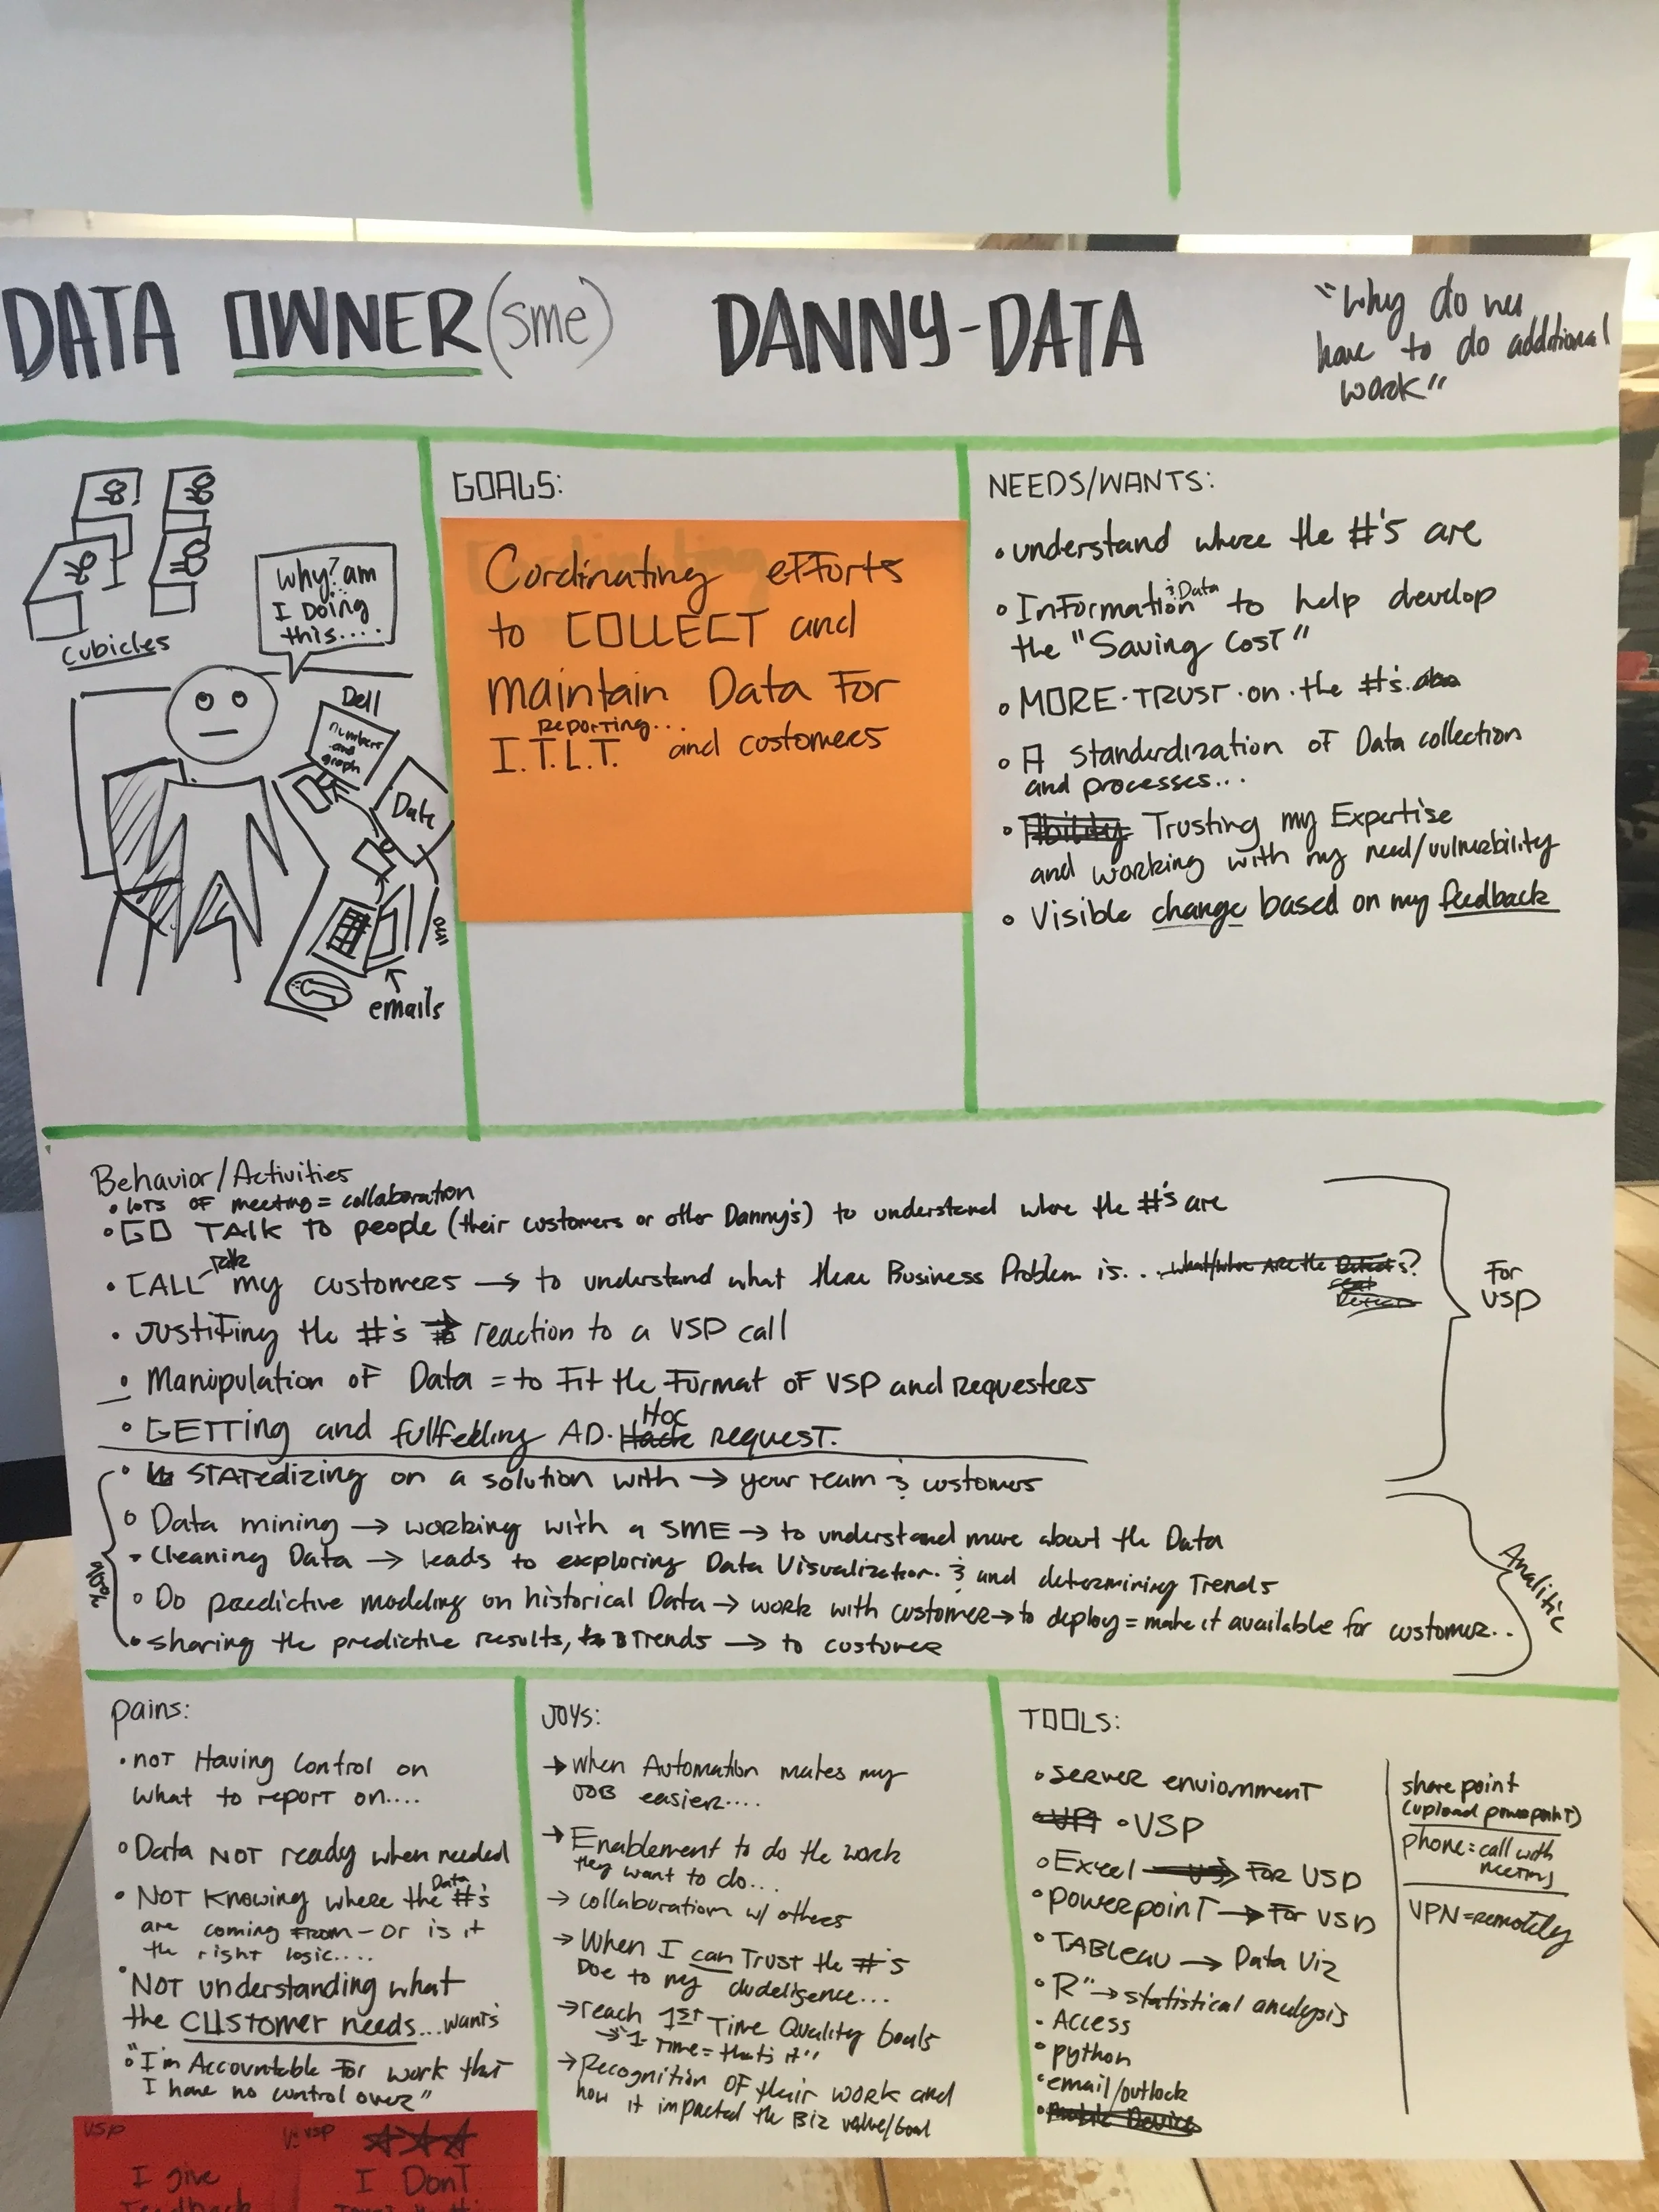 DATA OWNER (sme) DANNY-DATA
"Why do we
have to do additional
work"
cubicles
Why? am
I Doing
this....
Dell
numbers
and
graph
Data
emails
GOALS:
Cordinating efforts
to COLLECT and
maintain Data For
Reporting...
I.T.L.T. and customers
NEEDS/WANTS:
• understand where the #'s are
• Information & Data to help develop
the "Saving Cost"
• MORE TRUST on the #'s
• A Standerdization of Data collection
and processes...
• Ability Trusting my Expertise
and working with my need/vulnerbility
• Visible change based on my feedback
Behavior/Activities
• LOTS OF meeting = collaboration
• GO TALK TO people (their customers or other Danny's) to understand where the #'s are
• CALL Talk my customers → to understand what there Business Problem is... what/where ARE the
• Justifing the #'s → reaction to a VSP call
• Manipulation of Data = to Fit the Format of VSP and Requesters
• GETTING and fullfedling AD. Hack HOC REQUEST.
For
VSP
• STATedizing on a solution with → your team & customers
• Data mining → working with a SME → to understand more about the Data
• Cleaning Data → leads to exploring Data Visualization. & and determining Trends
• Do predictive modeling on historical Data → work with customer → to deploy = make it available for customer..
• sharing the predictive results, & Trends → to custover
Analitic
pains:
• NOT Having control on
what to report on....
• Data NOT ready when needed
• NOT Knowing where the Data #'s
are coming FROM - or is it
the right logic....
• NOT understanding what
the CUSTOMER needs...wants
• "I'm Accountable For work that
I have no control over"
VSP
I give
Feedback
VSP
I DonT
JOYS:
→ when Automation makes my
JOB easier....
→ Enablement to do the work
they want to do...
→ collaboration w/ others
→ When I can Trust the #'s
Due to my dudeligence...
→ reach 1ST Time Quality Goals
→ "1 Time = that's it"
→ Recognition OF their work and
how it impacted the Biz value/Goal
TOOLS:
• SERVER enviornment
• VSP
• Excel → For VSP
• powerpoint → For VSP
• TABLEAU → Data Viz
• R" → statistical analysis
• Access
• python
• email/outlook
• Mobile Device
share point
(upload powerpoint)
phone = call with
VPN = remotely